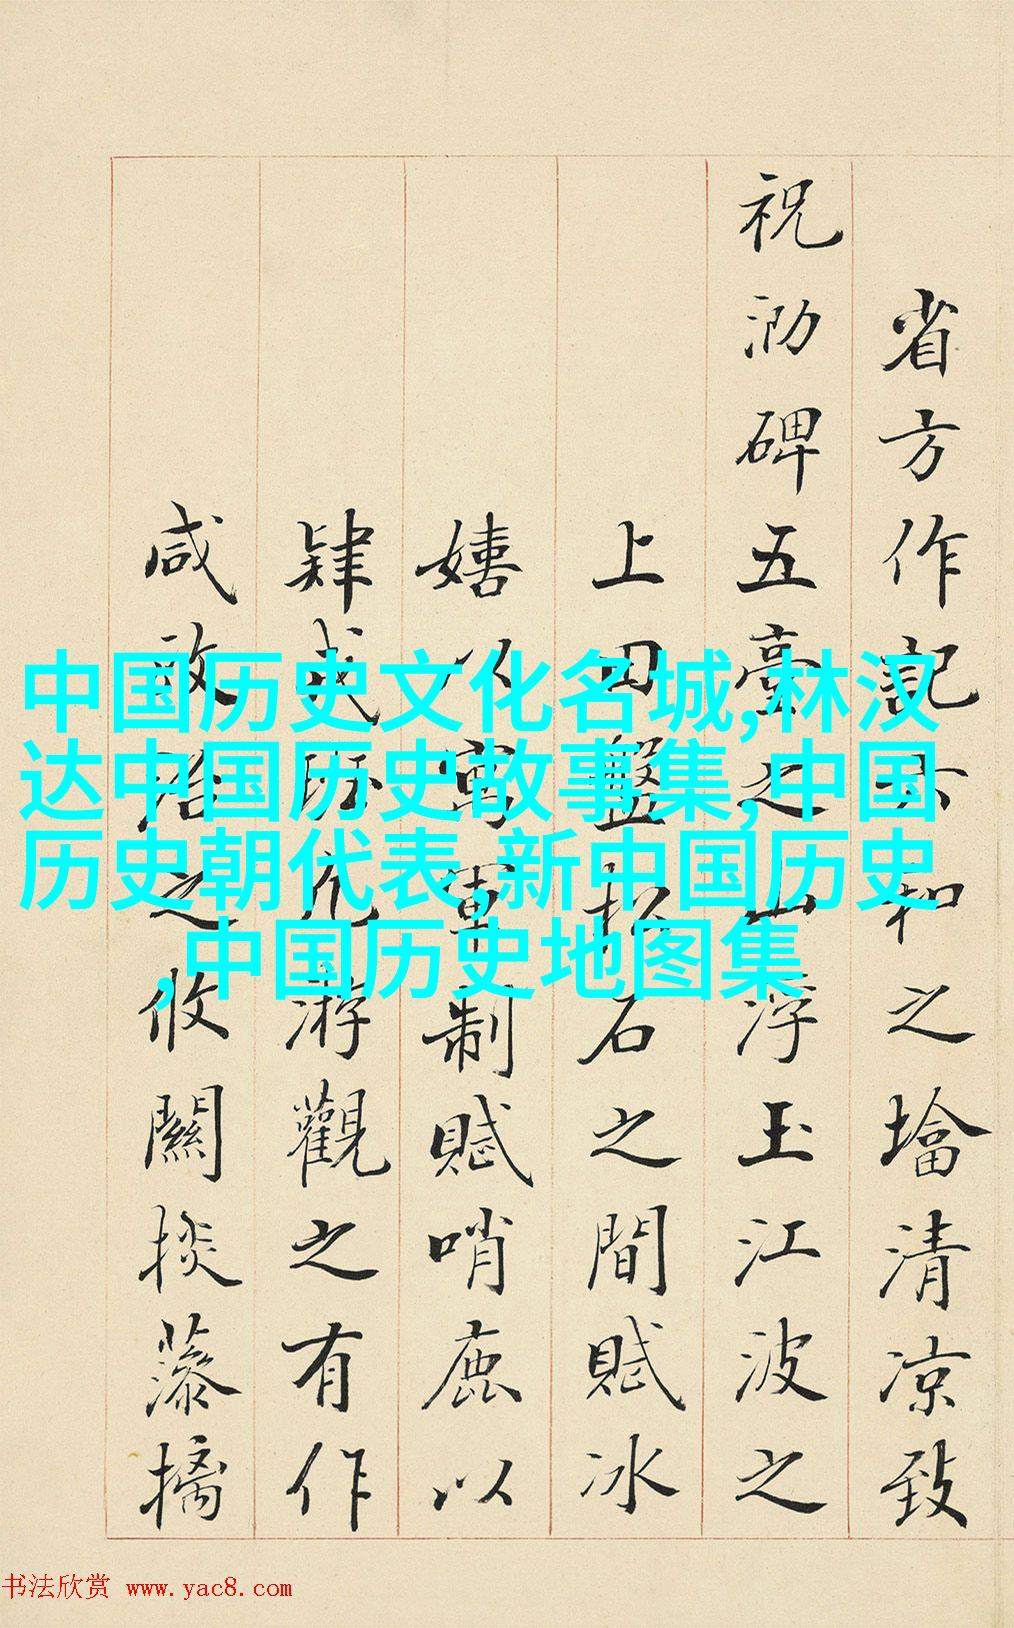 省方作記和之墖清涼致
祝泐碑五臺之山浮玉江波之
上田盤松石之間賦冰
嬉以寓軍制賦哨鹿以
肄武凡游觀之有作
咸政治之攸關掞藻摛
中国历史文化名城,林汉
达中国历史故事集,中国
历史朝代表,新中国历史
,中国历史地图集
书法欣赏 www.yac8.com